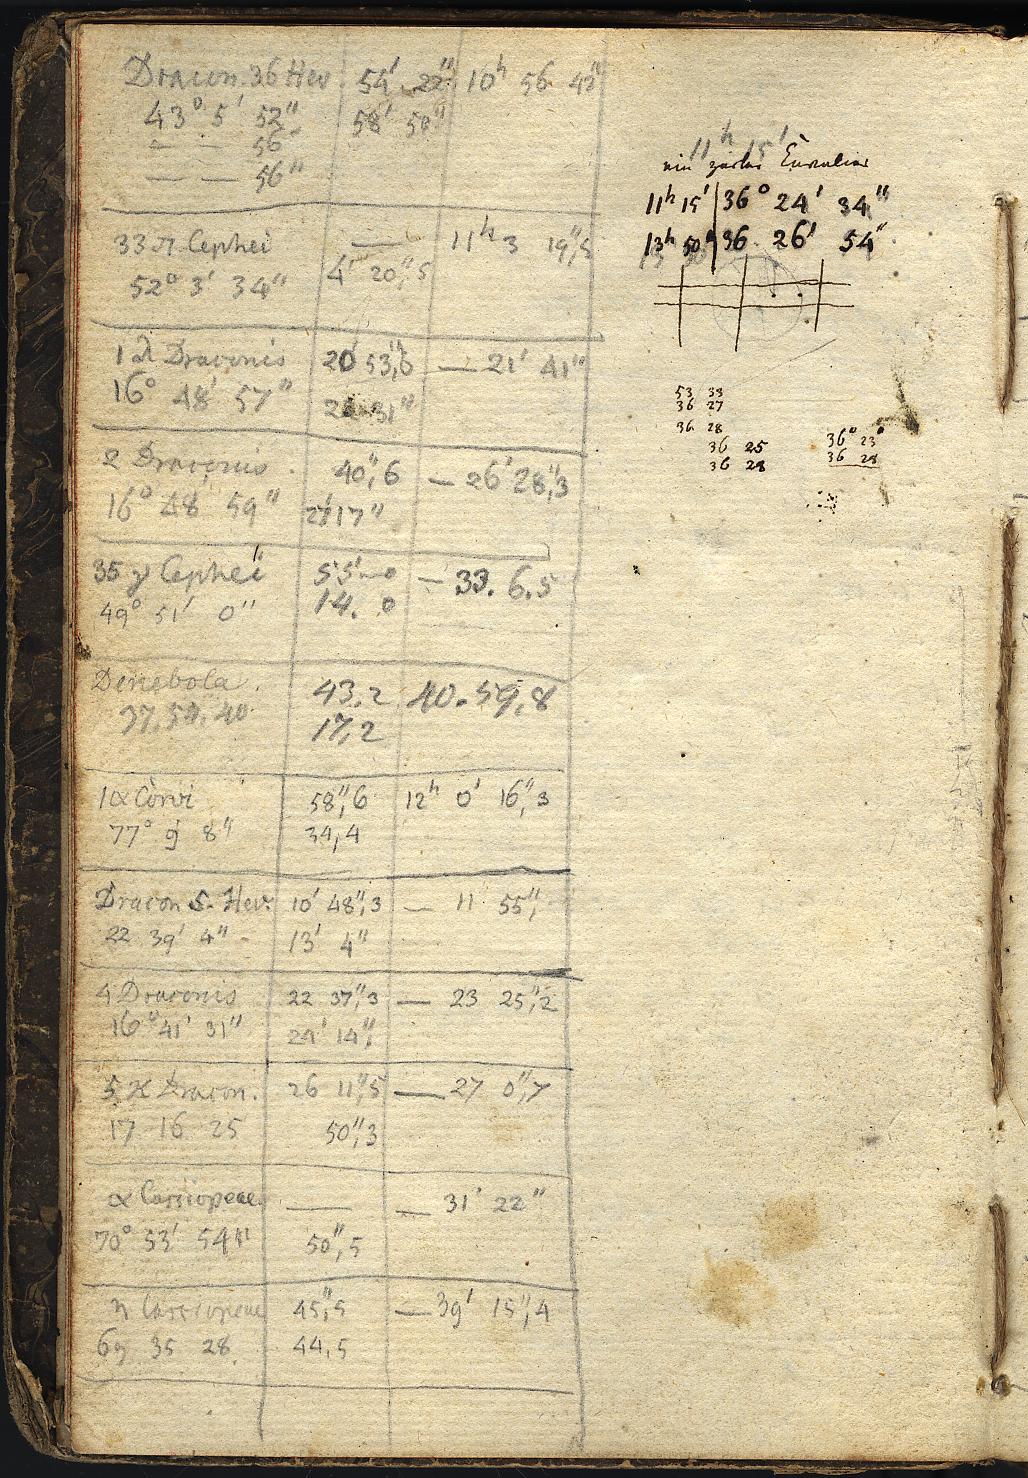 Dracon. 36 Hev. 54' 22" 10ʰ 56 42"
43° 5' 52" 58'
— — 56"
— — 56"
33 π Cephei — 11ʰ 3 19",5
52° 3' 34" 4' 20",5
1 λ Draconis 20' 53",6 — 21' 41"
16° 48' 57" 31"
2 Draconis. 40",6 — 26' 28",3
16° 48' 59" 27' 17"
35 γ Cephei 55' — 0 — 33. 6.5
49° 51' 0" 14. 0
Denebola. 43,2 40. 59,8
17,2
1 α Corvi 58",6 12ʰ 0' 16",3
77° 9' 8" 34,4
Dracon 5. Hev. 10' 48",3 — 11 55",
22 39' 4" 13' 4"
4 Draconis 22 37",3 — 23 25",2
16° 41' 31" 24' 14",
5 ϰ Dracon. 26 11",5 — 27 0",7
17 16 25 50",3
α Cassiopeae — — 31' 22"
70° 53' 54" 50",5
η Cassiopeae 45",5 — 39' 15",4
69 35 28 44,5
11ʰ 15'
ein
11ʰ 15' 36° 24' 34"
13ʰ 50' 36 26' 54"
53 33
36 27
36 28
36 25 36° 23'
36 28 36 28